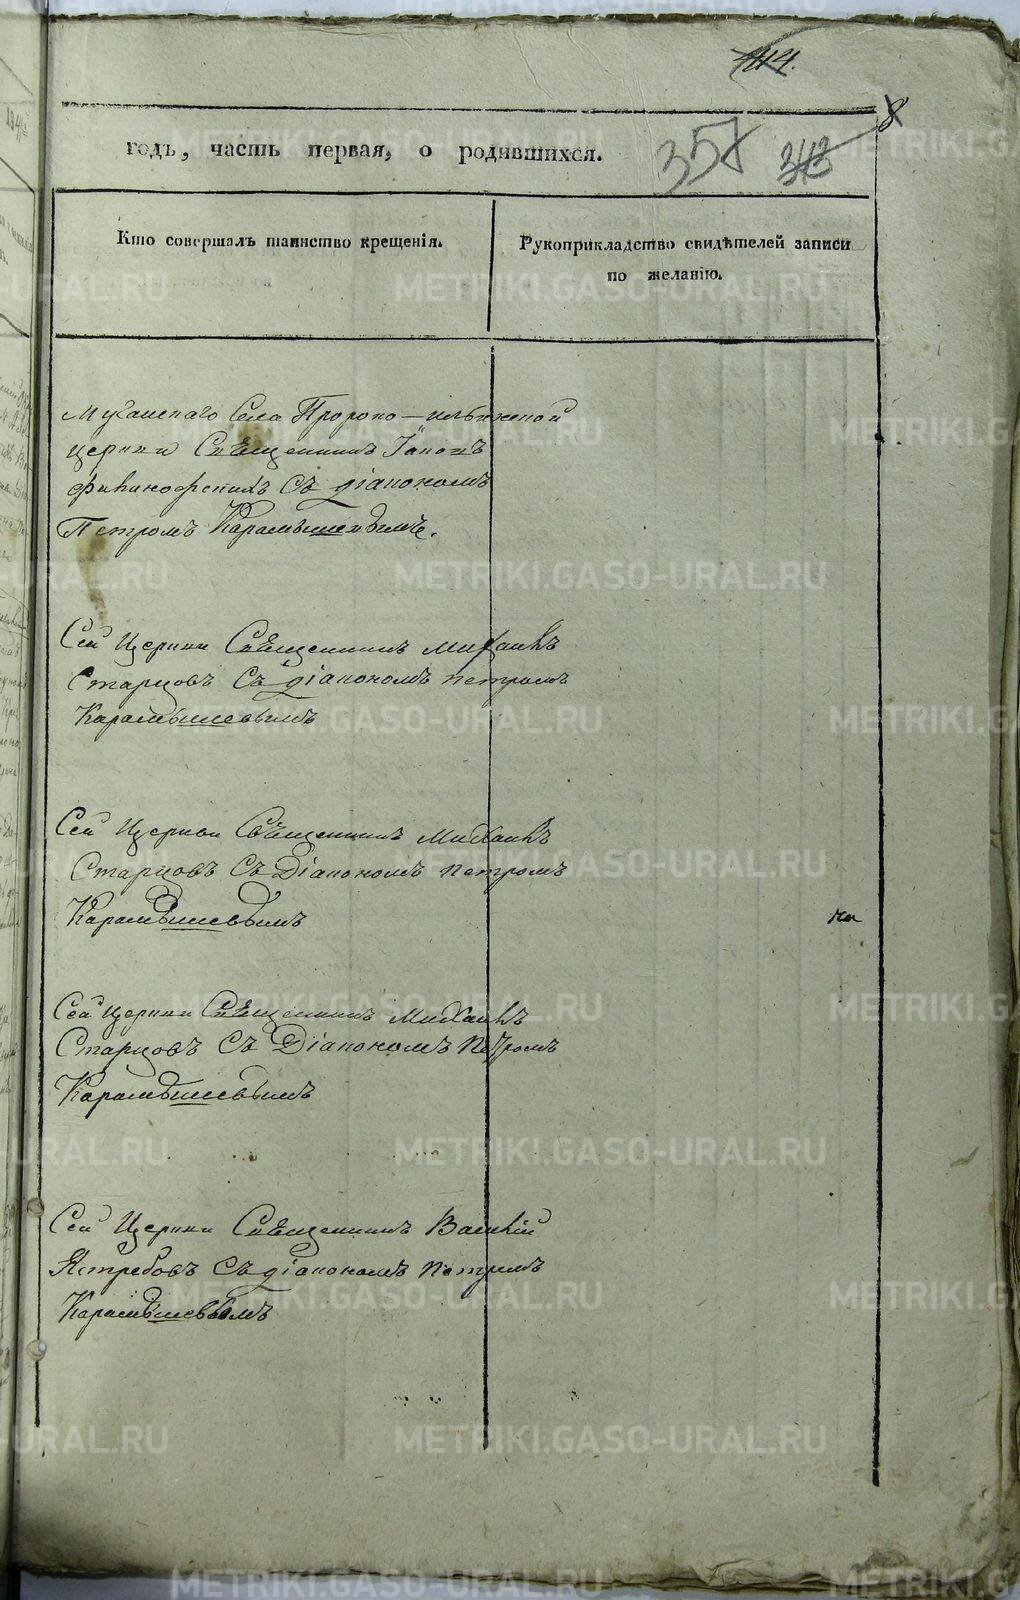 114.
8
годъ, часть первая, о родившихся.
357 343
Кто совершалъ таинство крещенія.
Рукоприкладство свидѣтелей записи
по желанію.
Села Пророко-Ильинской
церкви Священникъ
съ діакономъ
Петромъ Карамышевымъ.
Сей Церкви Священникъ Михаилъ
Старцовъ Съ діакономъ Петромъ
Карамышевымъ
Сей Церкви Священникъ Михаилъ
Старцовъ Съ Діакономъ Петромъ
Карамышевымъ
Сей Церкви Священникъ Михаилъ
Старцовъ Съ Діакономъ Петромъ
Карамышевымъ
Сей Церкви Священникъ Василій
Ястребовъ Съ діакономъ Петромъ
Карамышевымъ
METRIKI.GASO-URAL.RU